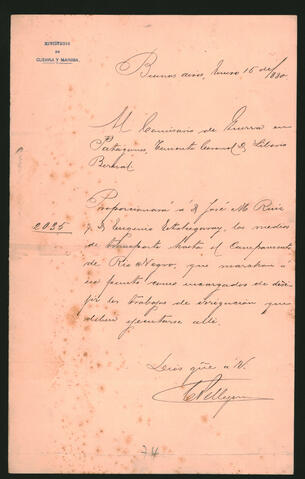 MINISTERIO
DE
GUERRA Y MARINA.
Buenos aires, Enero 16 de 1880.
Al Comisario de Guerra en
Patagones, Teniente Coronel D. Liborio
Bernal.
2035
Proporcionará á D. José M. Ruiz
y D. Eugenio los medios
de transporte hasta el Campamento
de Rio Negro, que marchan á
ese punto como encargados de diri-
jir los trabajos de irrigacion que
deben ejecutarse allí.
Dios gûe á V.
CPellegrini
74